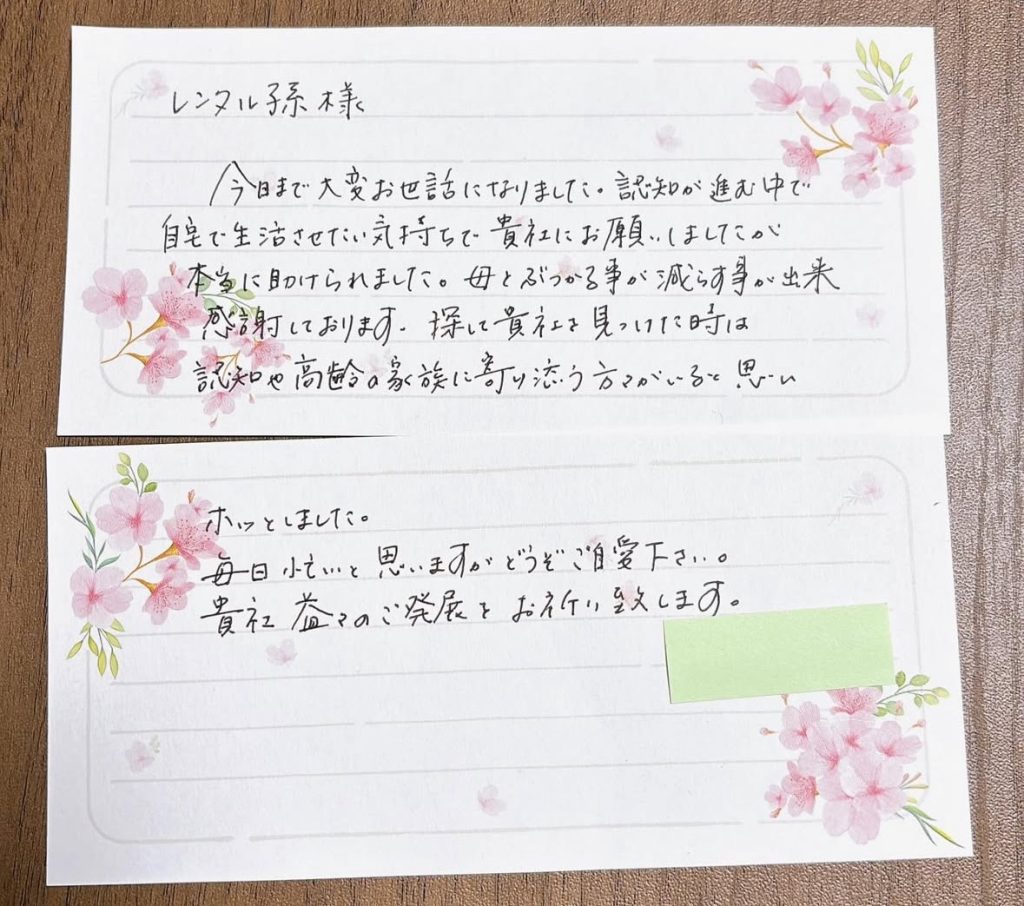 レンタル孫様
今日まで大変お世話になりました。認知が進む中で
自宅で生活させたい気持ちで貴社にお願いしましたが
本当に助けられました。母とぶつかる事が減らす事が出来
感謝しております。探して貴社を見つけた時は
認知や高齢の家族に寄り添う方々がいると思い
ホッとしました。
毎日忙いと思いますがどうぞご自愛下さい。
貴社益々のご発展をお祈り致します。